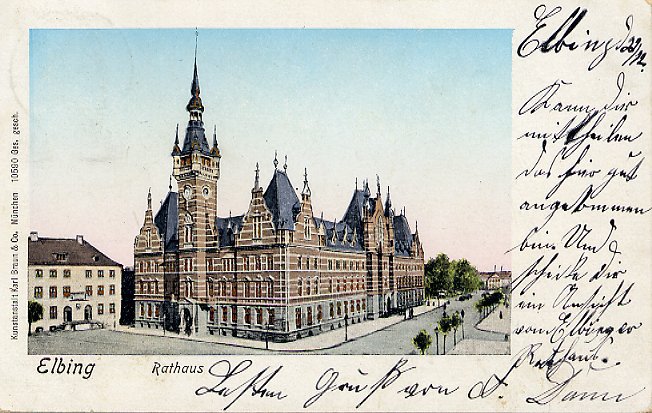 Kunstanstalt Karl Braun & Co. München 10590 Ges. gesch.
Elbing
Rathaus
Elbing d 
Kann dir
mittheilen
das hier gut
angekommen
bin. Und
schicke Dir
ein Ansicht
von Elbinger
Rathaus.
Besten Gruß von